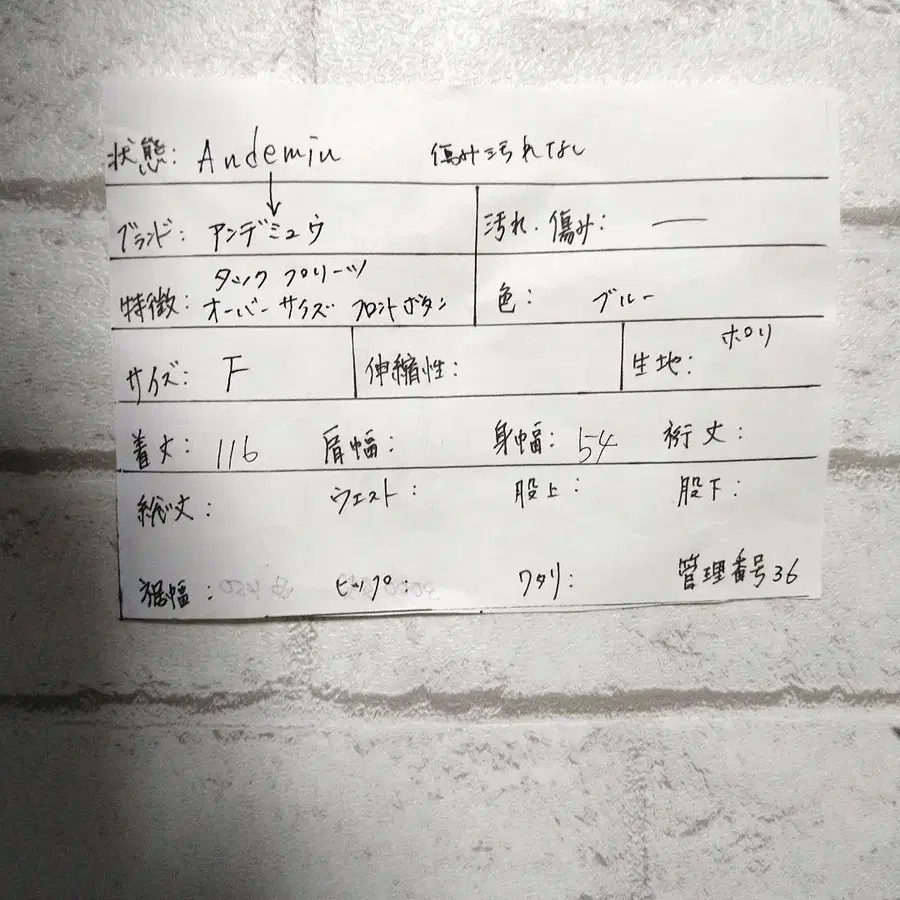 状態: Andemiu 傷み汚れなし
ブランド: アンデミュウ 汚れ.傷み: ―
特徴: タック プリーツ
オーバーサイズ フロントボタン 色: ブルー
サイズ: F 伸縮性: 生地: ポリ
着丈: 116 肩幅: 身幅: 54 裄丈:
総丈: ウエスト: 股上: 股下:
裾幅: ヒップ: ワタリ: 管理番号36